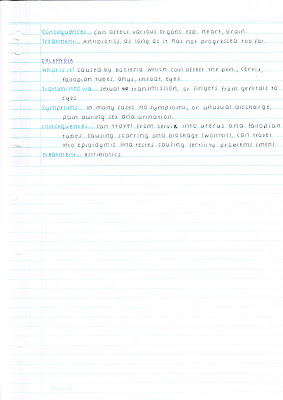 Consequences... Can affect various organs e.g. heart, brain.
Treatment... Antibiotics, as long as it has not progressed too far.
CHLAMYDIA
What is it? Caused by bacteria which can affect the penis, cervix,
fallopian tubes, anus, throat, eyes.
Transmitted via... Sexual transmission, or fingers from genitals to
eyes.
Symptoms... In many cases no symptoms, or unusual discharge,
pain during sex and urination.
Consequences... Can travel from cervix into uterus and fallopian
tubes causing scarring and blockage (women), can travel
into epididymis and testes causing fertility problems (men).
Treatment... Antibiotics